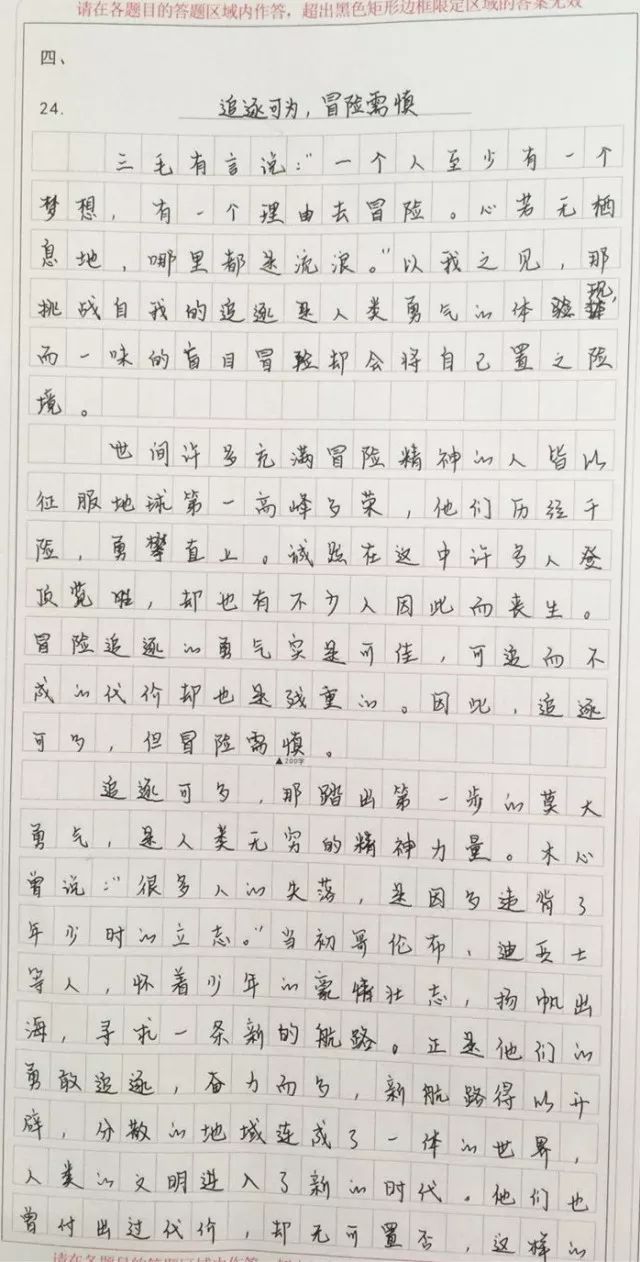 请在各题目的答题区域内作答，超出黑色矩形边框限定区域的答案无效
四、
24. 追逐可为，冒险需慎
三毛有言说：“一个人至少有一个
梦想，有一个理由去冒险。心若无栖
息地，哪里都是流浪。”以我之见，那
挑战自我的追逐是人类勇气的体现，
而一味的盲目冒验却会将自己置之险
境。
世间许多充满冒险精神的人皆以
征服地球第一高峰为荣，他们历经千
险，勇攀直上。诚然在这中许多人登
顶览胜，却也有不少人因此而丧生。
冒险追逐的勇气实是可佳，可追而不
成的代价却也是残重的。因此，追逐
可为，但冒险需慎。
▲200字
追逐可为，那踏出第一步的莫大
勇气，是人类无穷的精神力量。木心
曾说：“很多人的失落，是因为违背了
年少时的立志。”当初哥伦布、迪亚士
等人，怀着少年的豪情壮志，扬帆出
海，寻求一条新的航路。正是他们的
勇敢追逐，奋力而为，新航路得以开
辟，分散的地域连成了一体的世界，
人类的文明进入了新的时代。他们也
曾付出过代价，却无可置否，这样的
请在各题目的答题区域内作答，超出黑色矩形边框限定区域的答案无效